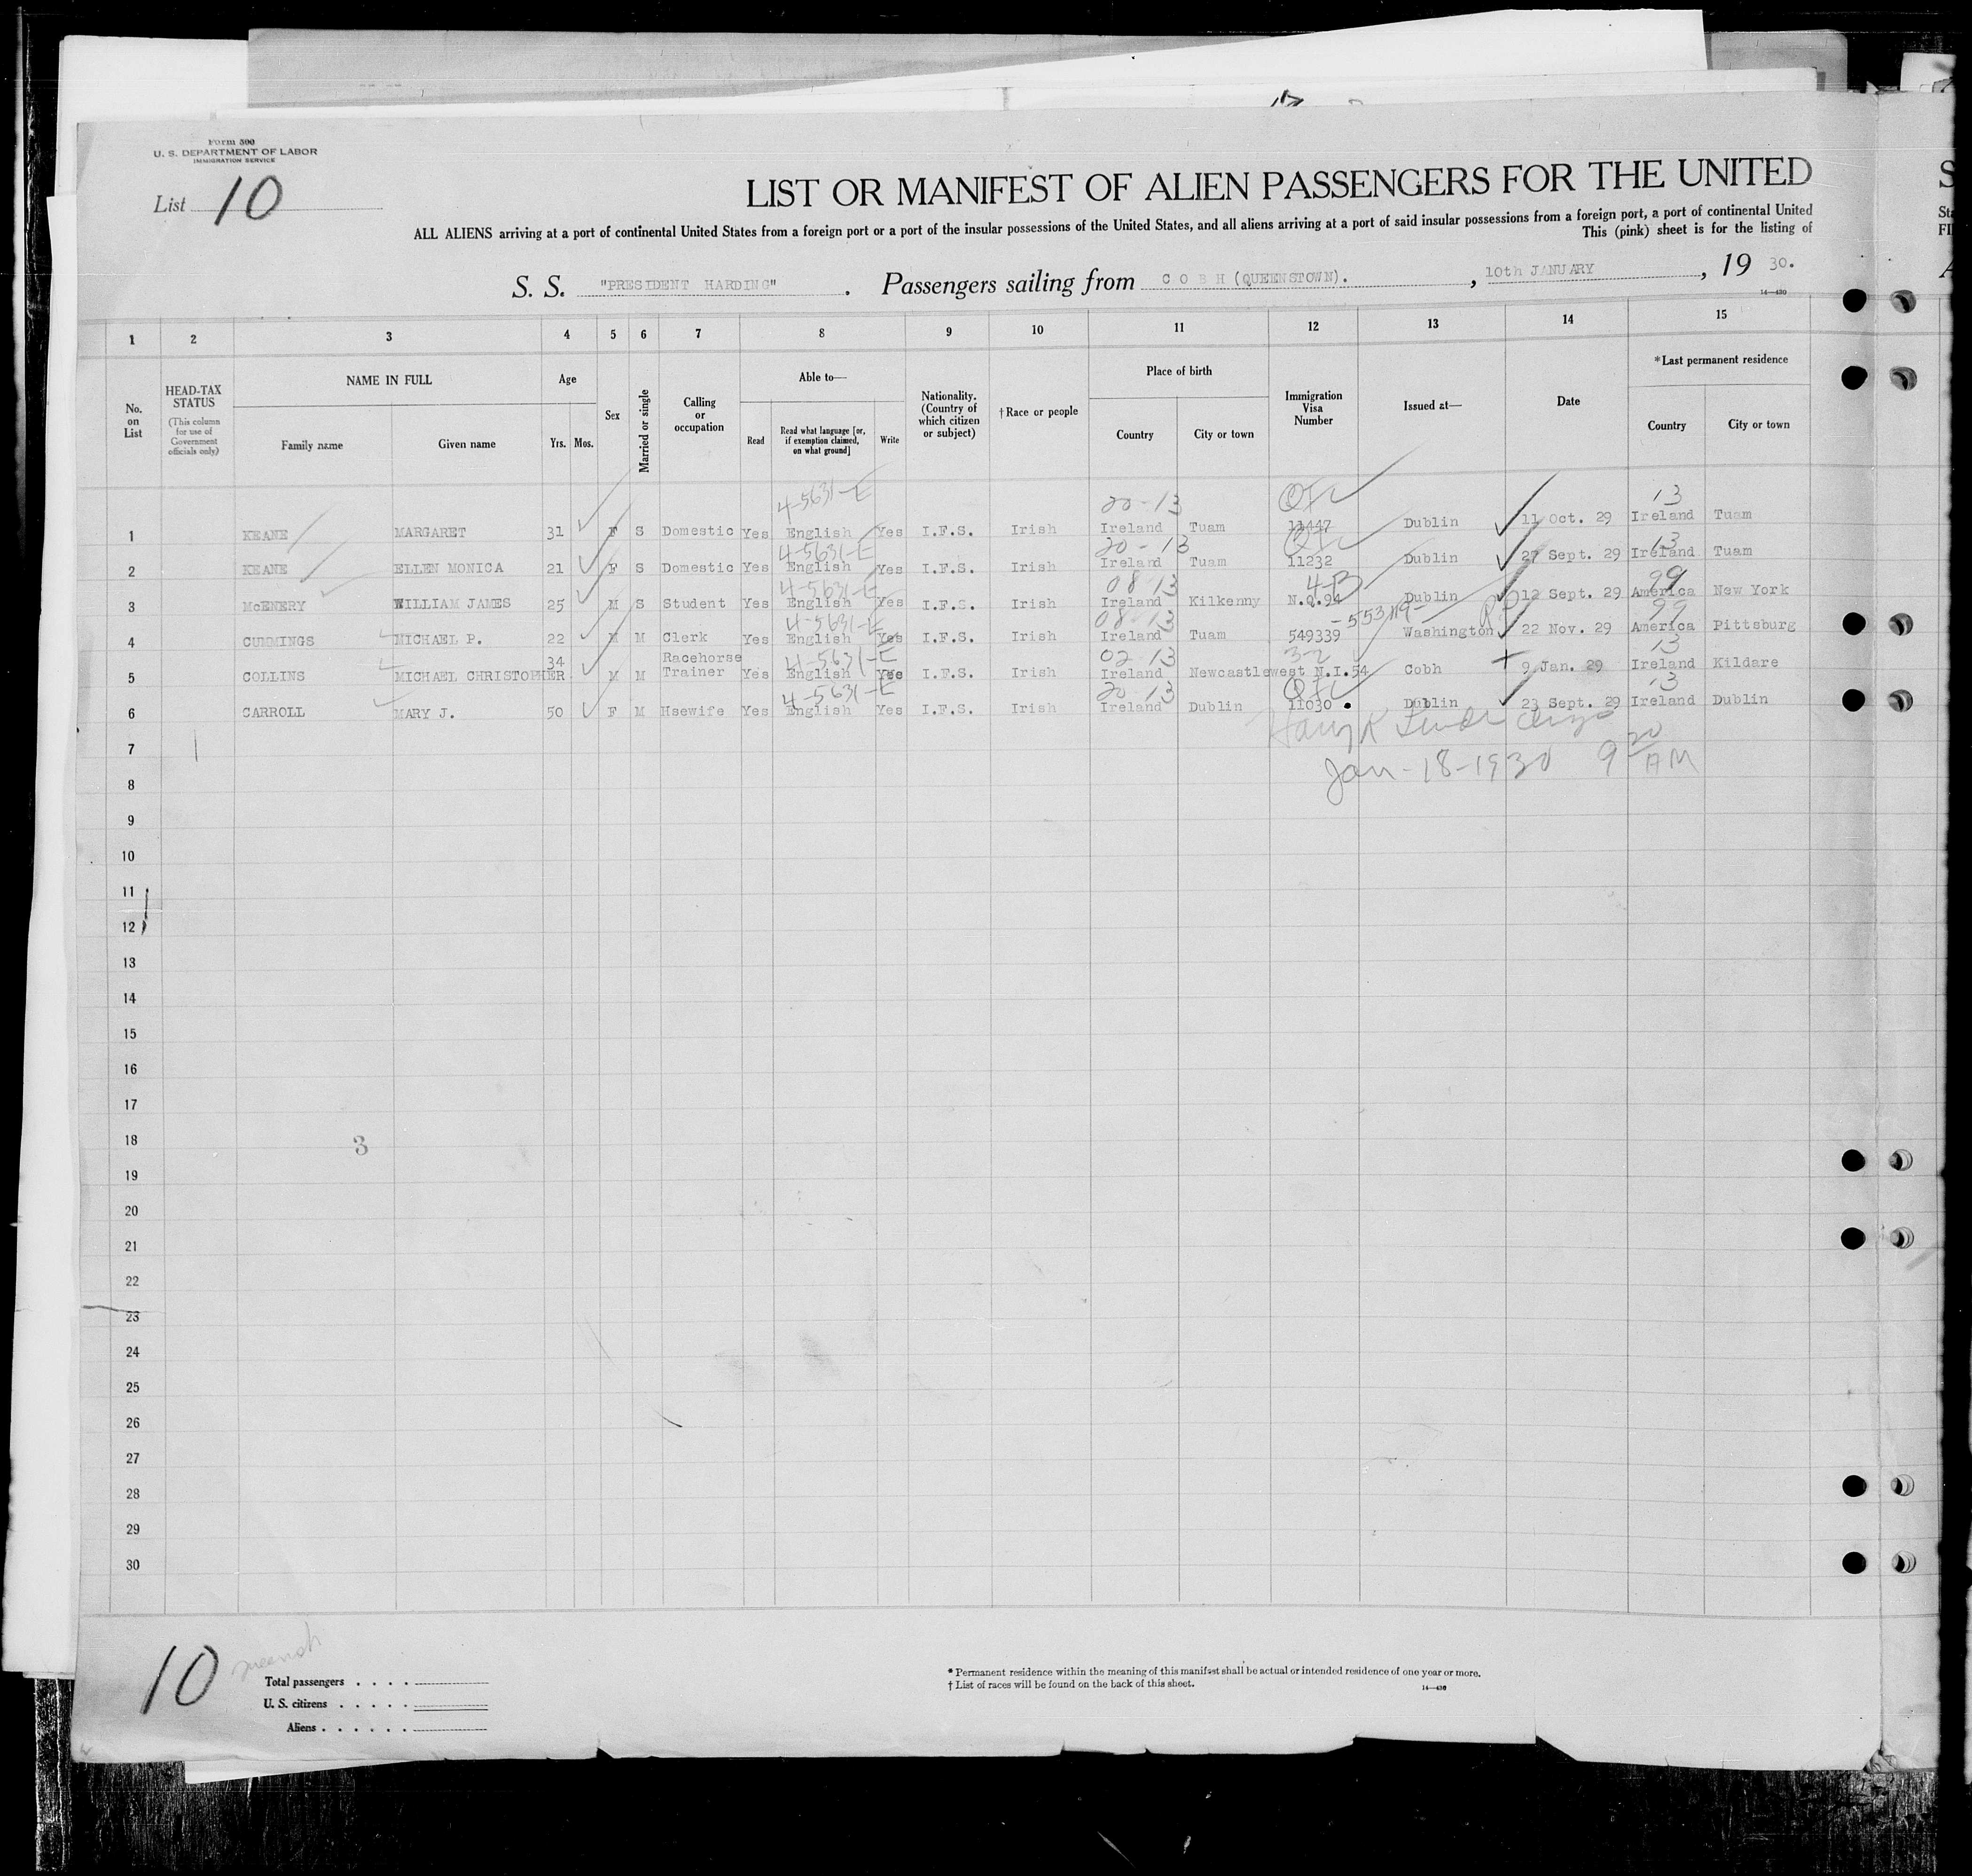 Form 500
U. S. DEPARTMENT OF LABOR
IMMIGRATION SERVICE
List 10
LIST OR MANIFEST OF ALIEN PASSENGERS FOR THE UNITED
ALL ALIENS arriving at a port of continental United States from a foreign port or a port of the insular possessions of the United States, and all aliens arriving at a port of said insular possessions from a foreign port, a port of continental United
This (pink) sheet is for the listing of
S. S. "PRESIDENT HARDING". Passengers sailing from C O B H (QUEENSTOWN)., 10th JANUARY, 19 30.
14—430
1 2 3 4 5 6 7 8 9 10 11 12 13 14 15
No. on List
HEAD-TAX STATUS
(This column for use of Government officials only)
NAME IN FULL
Family name
Given name
Age
Yrs.
Mos.
Sex
Married or single
Calling or occupation
Able to—
Read
Read what language [or, if exemption claimed, on what ground]
Write
Nationality. (Country of which citizen or subject)
†Race or people
Place of birth
Country
City or town
Immigration Visa Number
Issued at—
Date
*Last permanent residence
Country
City or town
4-5631-E 20-13 13
1 KEANE MARGARET 31 F S Domestic Yes English Yes I.F.S. Irish Ireland Tuam 11447 Dublin 11 Oct. 29 Ireland Tuam
4-5631-E 20-13 13
2 KEANE ELLEN MONICA 21 F S Domestic Yes English Yes I.F.S. Irish Ireland Tuam 11232 Dublin 27 Sept. 29 Ireland Tuam
4-5631-E 08-13 4-B 99
3 McENERY WILLIAM JAMES 25 M S Student Yes English Yes I.F.S. Irish Ireland Kilkenny N.Q.94 Dublin 12 Sept. 29 America New York
4-5631-E 08-13 99
4 CUMMINGS MICHAEL P. 22 M M Clerk Yes English Yes I.F.S. Irish Ireland Tuam 549339 Washington 22 Nov. 29 America Pittsburg
4-5631-E 02-13 3-2 13
5 COLLINS MICHAEL CHRISTOPHER 34 M M Racehorse Trainer Yes English Yes I.F.S. Irish Ireland Newcastlewest N.I.54 Cobh 9 Jan. 29 Ireland Kildare
4-5631-E 20-13 13
6 CARROLL MARY J. 50 F M Hsewife Yes English Yes I.F.S. Irish Ireland Dublin 11030 Dublin 23 Sept. 29 Ireland Dublin
7
Jan-18-1930 9 20 AM
8
9
10
11
12
13
14
15
16
17
18
3
19
20
21
22
23
24
25
26
27
28
29
30
10
Total passengers
U. S. citizens
Aliens
* Permanent residence within the meaning of this manifest shall be actual or intended residence of one year or more.
† List of races will be found on the back of this sheet.
14—430